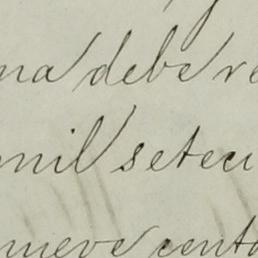 na debe re
mil seteci
nueve centa